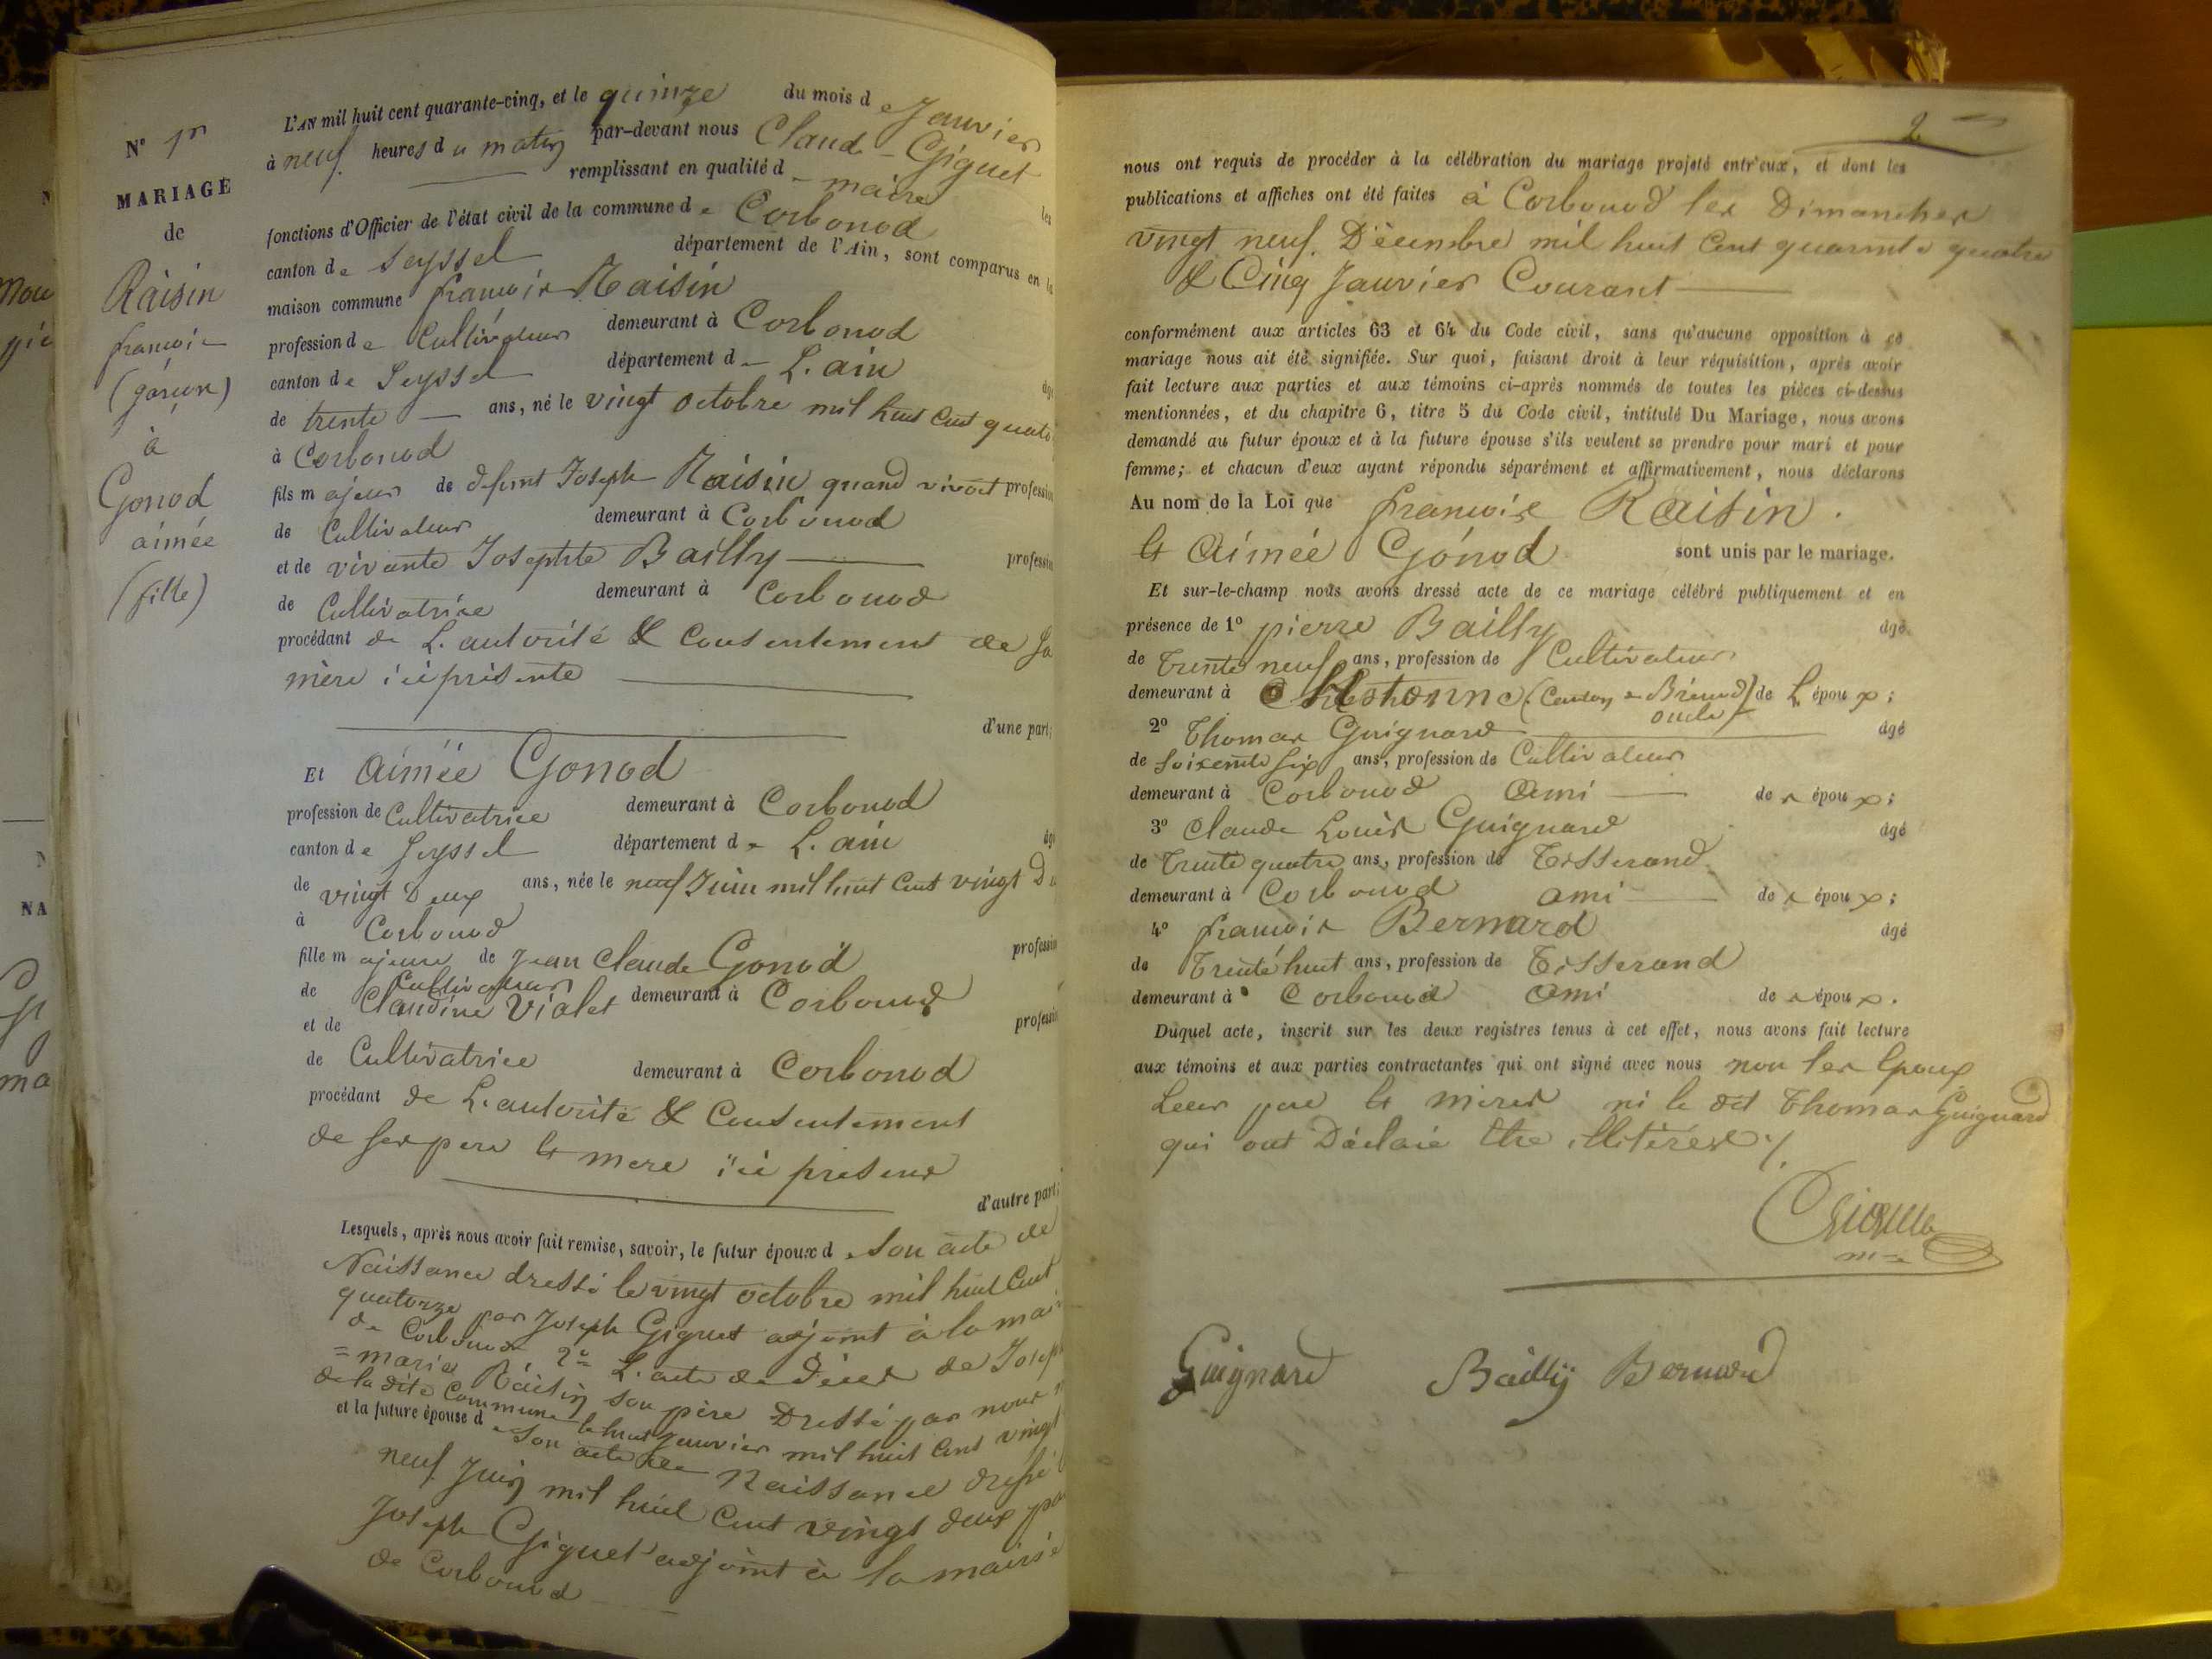 N° 1er
MARIAGE
de
Raisin
francois
(garcon)
à
Gonod
aimée
(fille)
L'AN mil huit cent quarante-cinq, et le quinze du mois de Janvier
à neuf heures du matin par-devant nous Claude Giguet
remplissant en qualité de maire les
fonctions d'Officier de l'état civil de la commune de Corbonod
canton de Seyssel département de l'Ain, sont comparus en la
maison commune francois Raisin
profession de Cultivateur demeurant à Corbonod
canton de Seyssel département de L'ain âgé
de trente ans, né le vingt octobre mil huit cent quato
à Corbonod
fils majeur de defunt Joseph Raisin quand vivait profession
de Cultivateur demeurant à Corbonod
et de vivante Josephte Bailly profession
de Cultivatrice demeurant à Corbonod
procédant de L'autorité & Consentement de sa
mère ici présente
d'une part;
Et aimée Gonod
profession de Cultivatrice demeurant à Corbonod
canton de Seyssel département de L'ain âgé
de vingt Deux ans, née le neuf Juin mil huit cent vingt D
à Corbonod
fille majeure de Jean Claude Gonod profession
de Cultivateur demeurant à Corbonod
et de Claudine Violet profession
de Cultivatrice demeurant à Corbonod
procédant de L'autorité & Consentement
de ses pere et mere ici present
d'autre part;
Lesquels, après nous avoir fait remise, savoir, le futur époux de son acte de
Naissance dressé le vingt octobre mil huit Cent
quatorze par Joseph Giguet adjoint à la mai
de Corbonod 2° L'acte de Décès de Josep
=marie Raisin son père Dressé par nous
de la dite Commune le huit Janvier mil huit Cent vingt
et la future épouse de son acte de Naissance dressé
neuf Juin mil huit Cent vingt deux pa
Joseph Giguet adjoint à la mairie
de Corbonod
2
nous ont requis de procéder à la célébration du mariage projeté entr'eux, et dont les
publications et affiches ont été faites à Corbonod les Dimanches
vingt neuf Décembre mil huit Cent quarante quatre
& Cinq Janvier Courant
conformément aux articles 63 et 64 du Code civil, sans qu'aucune opposition à ce
mariage nous ait été signifiée. Sur quoi, faisant droit à leur réquisition, après avoir
fait lecture aux parties et aux témoins ci-après nommés de toutes les pièces ci-dessus
mentionnées, et du chapitre 6, titre 5 du Code civil, intitulé Du Mariage, nous avons
demandé au futur époux et à la future épouse s'ils veulent se prendre pour mari et pour
femme; et chacun d'eux ayant répondu séparément et affirmativement, nous déclarons
Au nom de la Loi que francois Raisin.
et Aimée Gonod sont unis par le mariage.
Et sur-le-champ nous avons dressé acte de ce mariage célébré publiquement et en
présence de 1° pierre Bailly âgé
de Trente neuf ans, profession de Cultivateur
demeurant à (Canton de oncle de L'époux;
2° Thomas Guignard âgé
de soixante six ans, profession de Cultivateur
demeurant à Corbonod ami de l'époux;
3° Claude Louis Guignard âgé
de Trente quatre ans, profession de Tisserand
demeurant à Corbonod ami de l'époux;
4° francois Bernard âgé
de Trente huit ans, profession de Tisserand
demeurant à Corbonod ami de l'époux.
Duquel acte, inscrit sur les deux registres tenus à cet effet, nous avons fait lecture
aux témoins et aux parties contractantes qui ont signé avec nous non les Epoux
Leur pere et meres ni le dit Thomas Guignard
qui ont Déclaré Etre illitérés ./.
Guignard Bailly Bernard